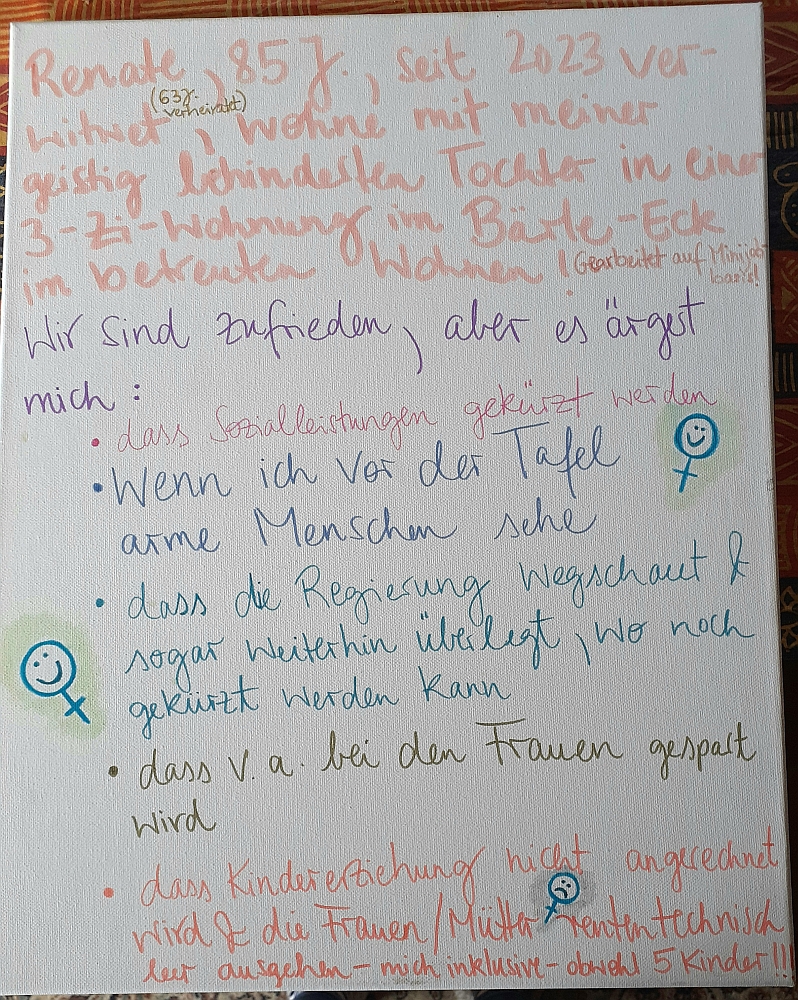 Renate, 85 J., seit 2023 ver-
(63 J. verheiratet)
witwet, wohne mit meiner
geistig behinderten Tochter in einer
3-Zi-Wohnung im Bärle-Eck
im betreuten Wohnen! (Gearbeitet auf Minijob
basis!
Wir sind zufrieden, aber es ärgert
mich:
• dass Sozialleistungen gekürzt werden
• Wenn ich vor der Tafel
arme Menschen sehe
• dass die Regierung wegschaut &
sogar weiterhin überlegt, wo noch
gekürzt werden kann
• dass v. a. bei den Frauen gespart
wird
• dass Kindererziehung nicht angerechnet
wird & die Frauen/Mütter rententechnisch
leer ausgehen – mich inklusive – obwohl 5 Kinder!!!